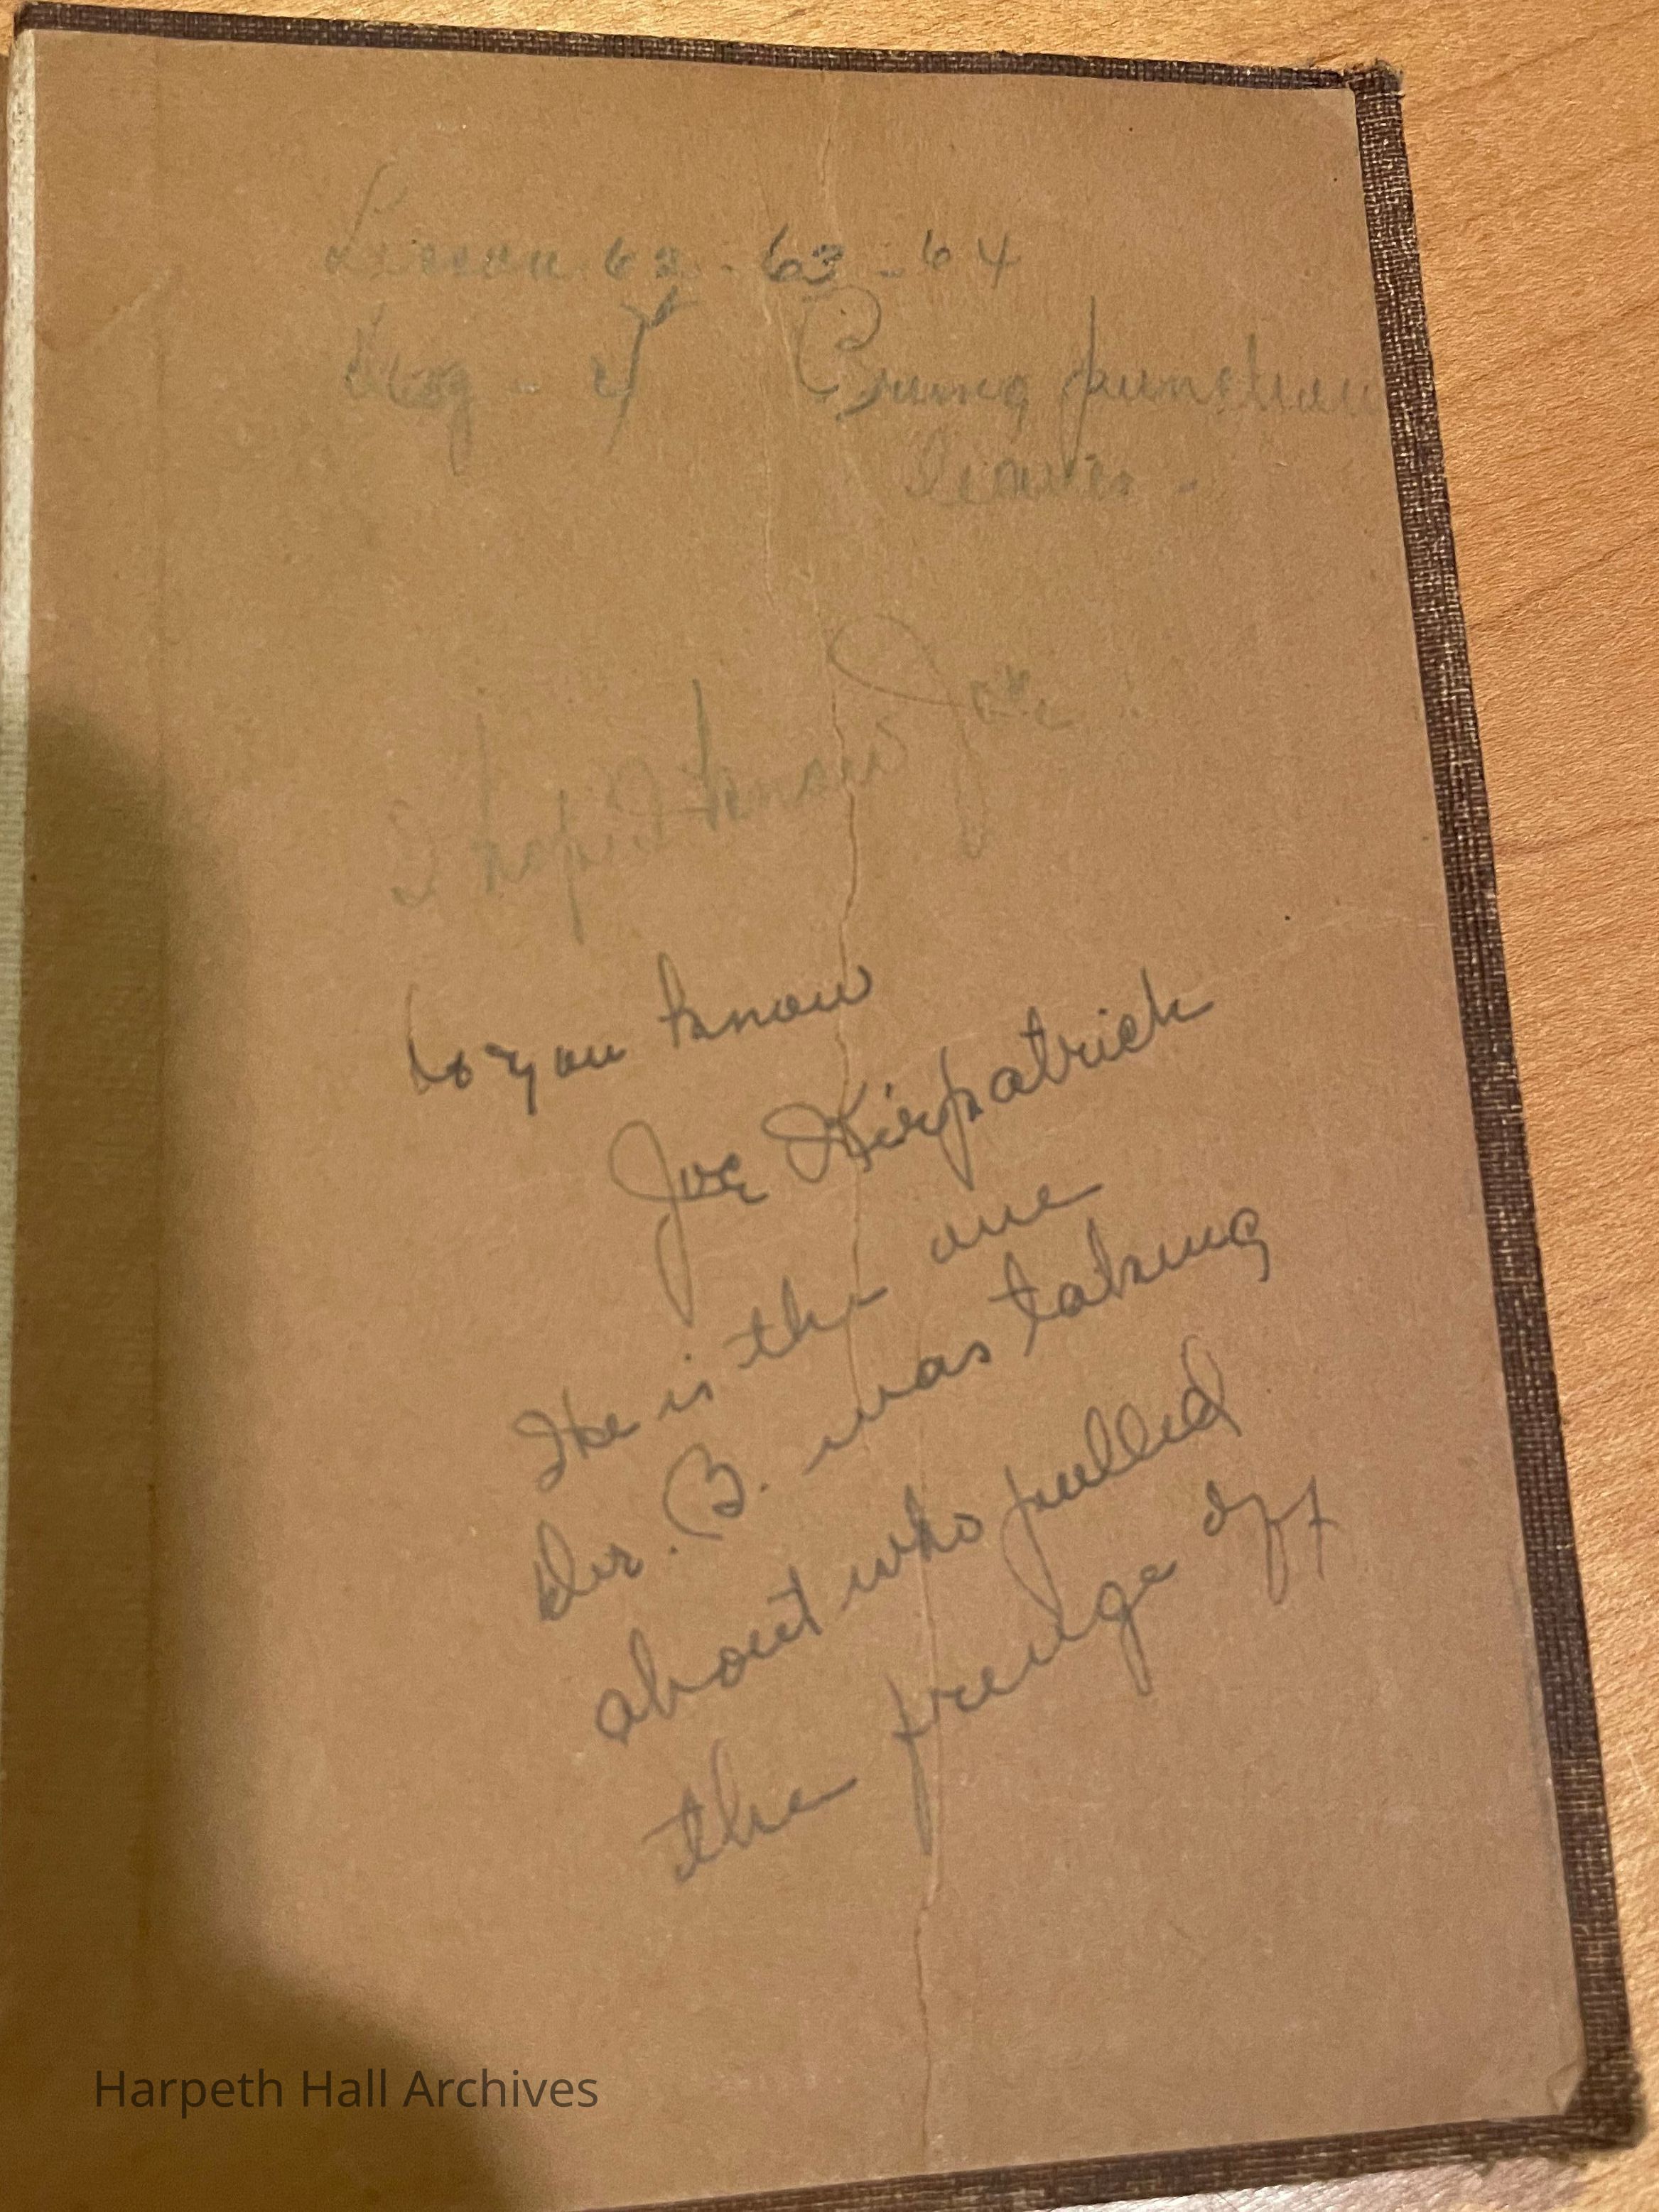 Lesson 62 - 63 - 64
Aug - 4 Bring
I hope I know Joe
Do you know
Joe Kirkpatrick
He is the one
Dr. B. was talking
about who pulled
the frenge off
Harpeth Hall Archives